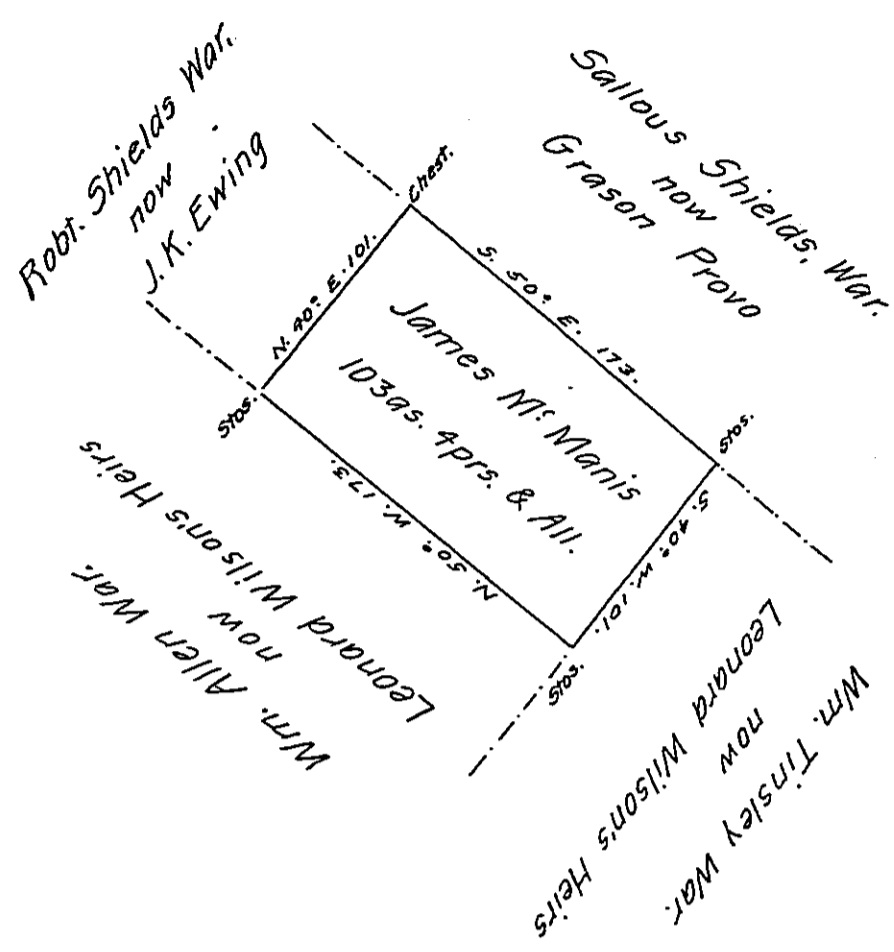 Robt. Shields War.
now
J.K. Ewing
Sallous Shields, War.
now
Grason Provo
Chest.
N. 40° E. 101.
S. 50° E. 173.
James Mc Manis
103as. 4prs. & All.
Stos.
Stos.
S. 40° W. 101.
N. 50° W. 173.
Stos.
Wm. Allen War.
now
Leonard Wilson's Heirs
Wm. Tinsley War.
now
Leonard Wilson's Heirs